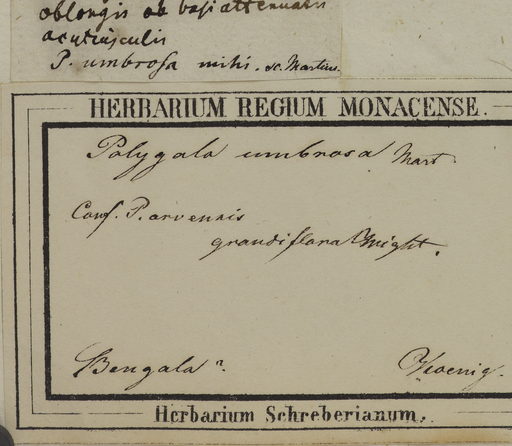 oblongis ab basi attenuatis
acutiusculis
P. umbrosa mihi. sc. Martius.
HERBARIUM REGIUM MONACENSE.
Polygala umbrosa Mart.
Conf. P. arvensis
grandiflora Wight.
Bengala?
Koenig.
Herbarium Schreberianum.